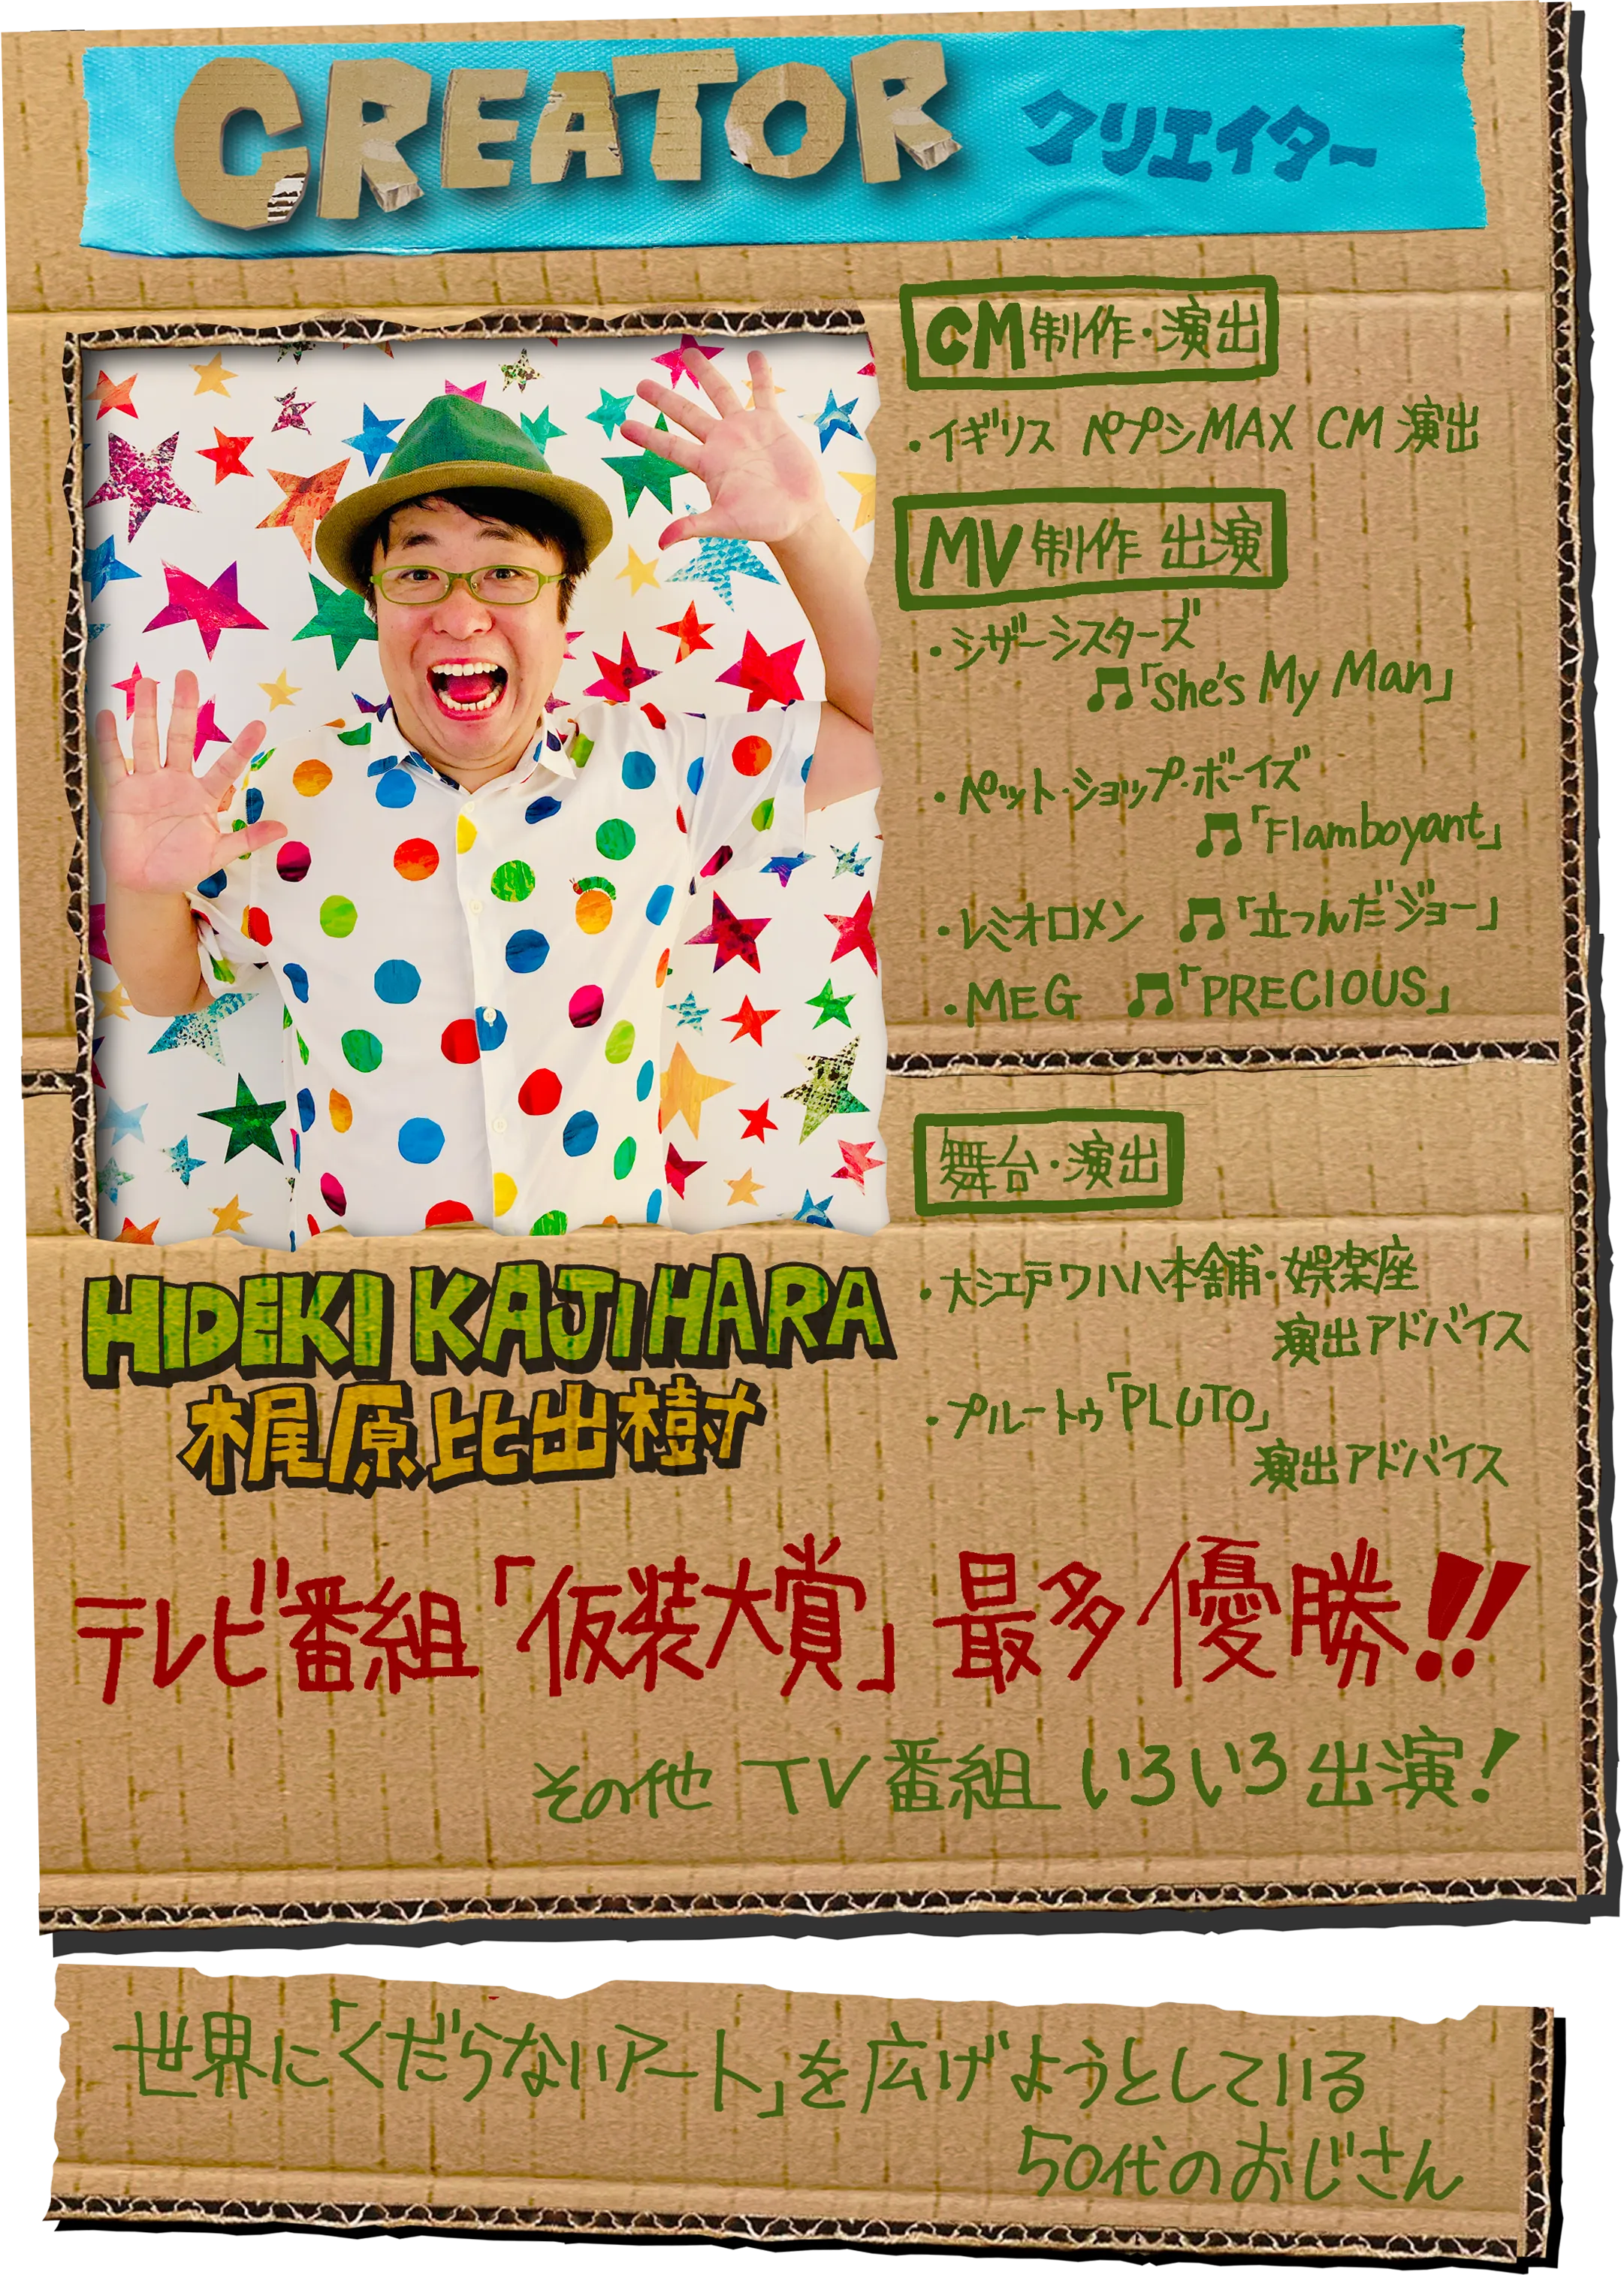 CREATOR クリエイター
CM制作・演出
・イギリス ペプシMAX CM 演出
MV制作 出演
・シザーシスターズ
♫「She's My Man」
・ペット・ショップ・ボーイズ
♫「Flamboyant」
・レミオロメン ♫「立つんだジョー」
・MEG ♫「PRECIOUS」
舞台・演出
・大江戸ワハハ本舗・娯楽座
演出アドバイス
・プルートゥ「PLUTO」
演出アドバイス
HIDEKI KAJIHARA
梶原比出樹
テレビ番組「仮装大賞」最多優勝!!
その他 TV番組 いろいろ出演!
世界に「くだらないアート」を広げようとしている
50代のおじさん